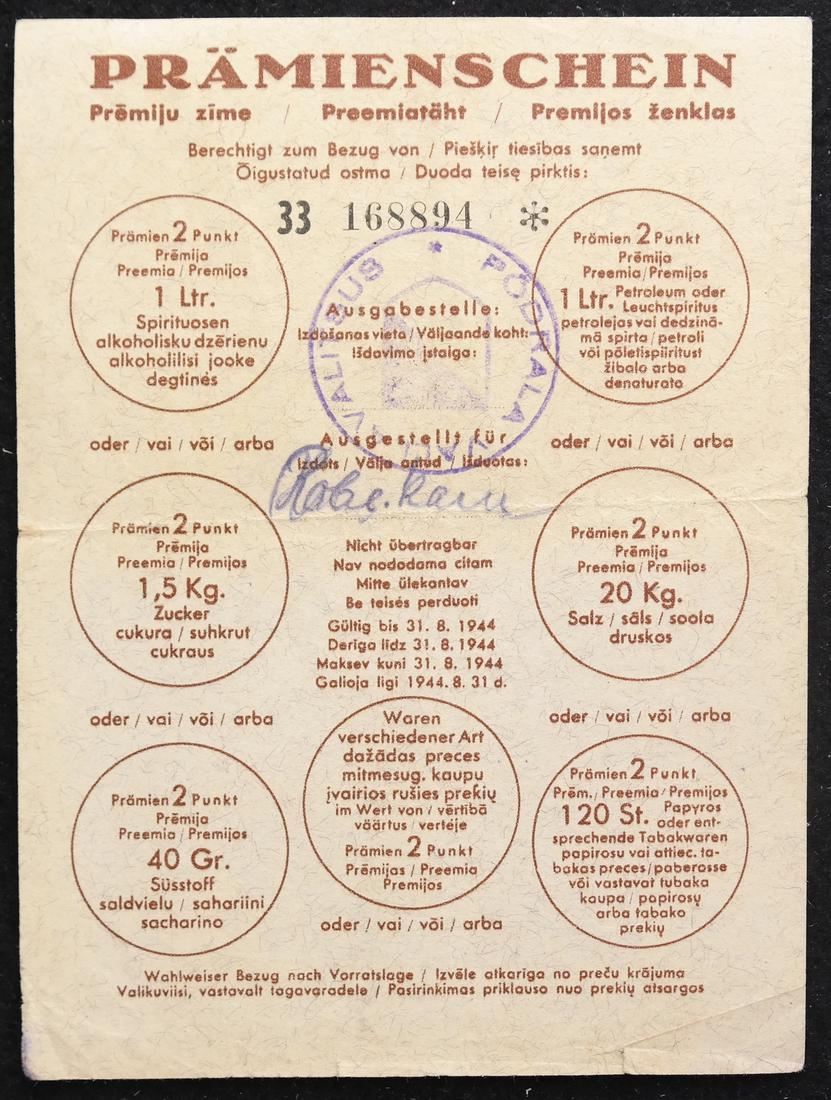 PRÄMIENSCHEIN
Prēmiju zīme / Preemiatäht / Premijos ženklas
Berechtigt zum Bezug von / Piešķir tiesības saņemt
Õigustatud ostma / Duoda teisę pirktis:
33 168894 *
Prämien 2 Punkt
Prēmija
Preemia / Premijos
1 Ltr.
Spirituosen
alkoholisku dzērienu
alkoholilisi jooke
degtinės
* PÕDRALA VALLAVALITSUS
Ausgabestelle:
Izdošanas vieta / Väljaande koht:
Išdavimo įstaiga:
Prämien 2 Punkt
Prēmija
Preemia / Premijos
1 Ltr. Petroleum oder
Leuchtspiritus
petrolejas vai dedzinā-
mā spirta / petroli
või põletispiiritust
žibalo arba
denaturato
oder / vai / või / arba
Ausgestellt für
Izdots / Välja antud / Išduotas:
oder / vai / või / arba
Prämien 2 Punkt
Prēmija
Preemia / Premijos
1,5 Kg.
Zucker
cukura / suhkrut
cukraus
Nicht übertragbar
Nav nododama citam
Mitte ülekantav
Be teisės perduoti
Gültig bis 31. 8. 1944
Derīga līdz 31. 8. 1944
Maksev kuni 31. 8. 1944
Galioja ligi 1944. 8. 31 d.
Prämien 2 Punkt
Prēmija
Preemia / Premijos
20 Kg.
Salz / sāls / soola
druskos
oder / vai / või / arba
oder / vai / või / arba
Prämien 2 Punkt
Prēmija
Preemia / Premijos
40 Gr.
Süsstoff
saldvielu / sahariini
sacharino
Waren
verschiedener Art
dažādas preces
mitmesug. kaupu
įvairios rušies prekių
im Wert von / vērtībā
väärtus / vertėje
Prämien 2 Punkt
Prēmijas / Preemia
Premijos
oder / vai / või / arba
Prämien 2 Punkt
Prēm. / Preemia / Premijos
120 St. Papyros
oder ent-
sprechende Tabakwaren
papirosu vai attiec. ta-
bakas preces / paberosse
või vastavat tubaka
kaupa / papirosų
arba tabako
prekių
Wahlweiser Bezug nach Vorratslage / Izvēle atkarīga no preču krājuma
Valikuviisi, vastavalt tagavaradele / Pasirinkimas priklauso nuo prekių atsargos